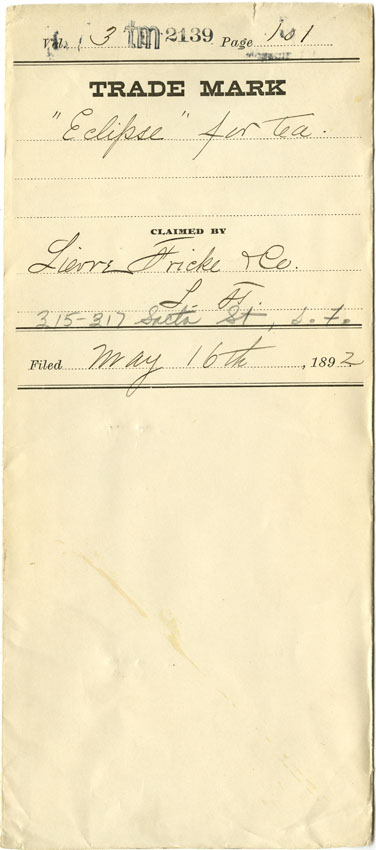 Vol. 3 tm 2139 Page 101
TRADE MARK
"Eclipse" for tea.
CLAIMED BY
Sievre Fricke & Co.
S. F.
315-317 Sacto St, S. F.
Filed May 16th, 1892